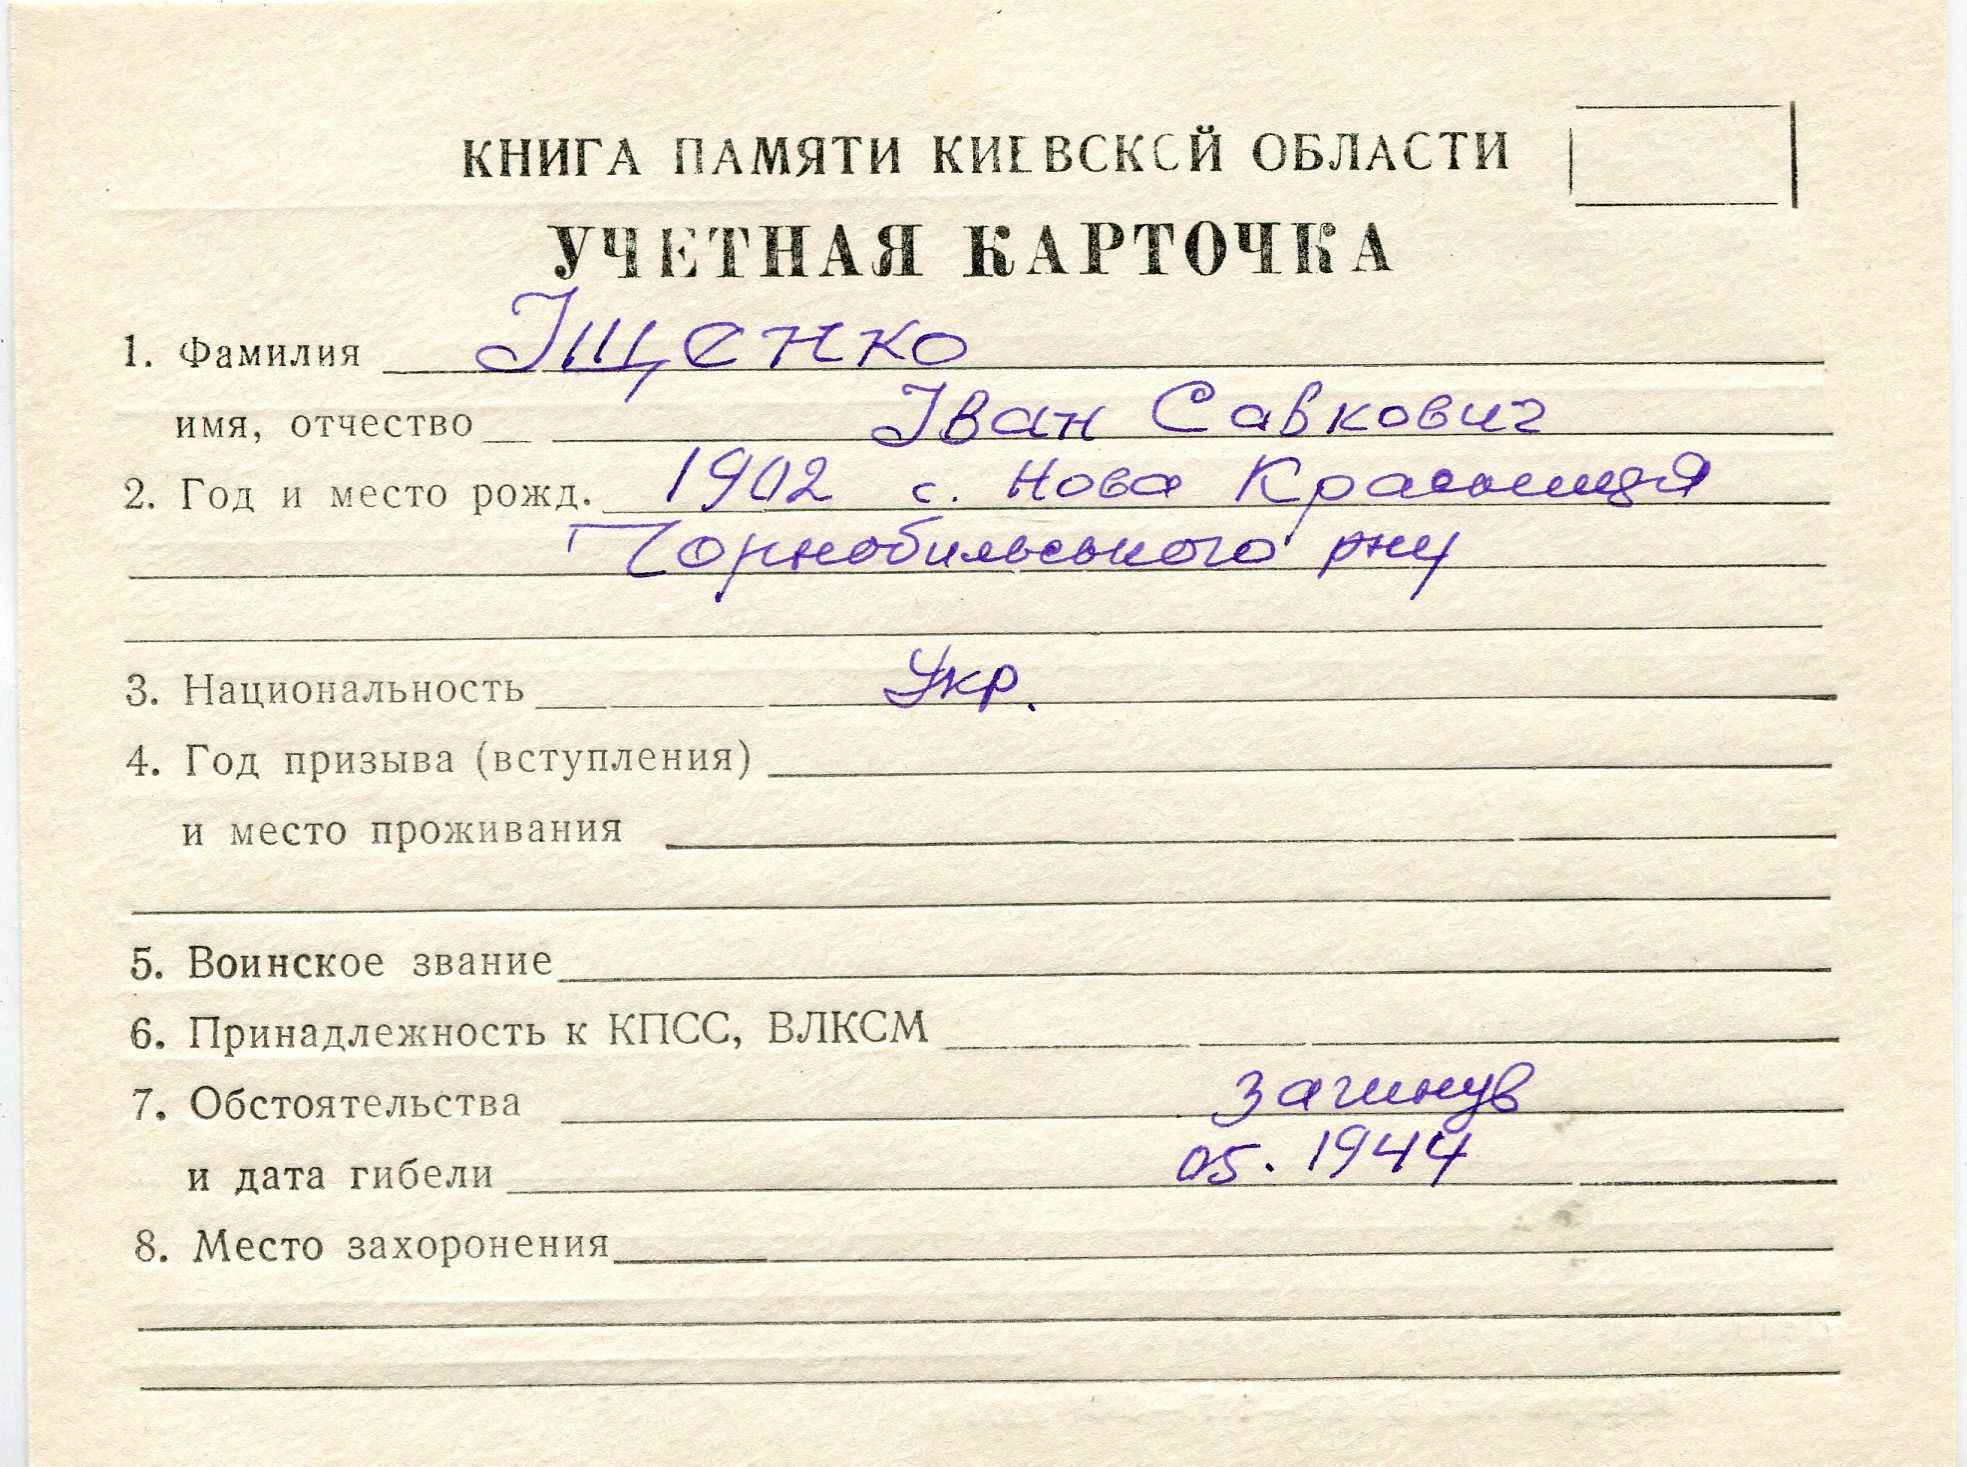 КНИГА ПАМЯТИ КИЕВСКОЙ ОБЛАСТИ
УЧЕТНАЯ КАРТОЧКА
1. Фамилия Іщенко
имя, отчество Іван Савкович
2. Год и место рожд. 1902 с. Нова Красниця
Чорнобильського рну
3. Национальность Укр.
4. Год призыва (вступления)
и место проживания
5. Воинское звание
6. Принадлежность к КПСС, ВЛКСМ
7. Обстоятельства загинув
и дата гибели 05. 1944
8. Место захоронения